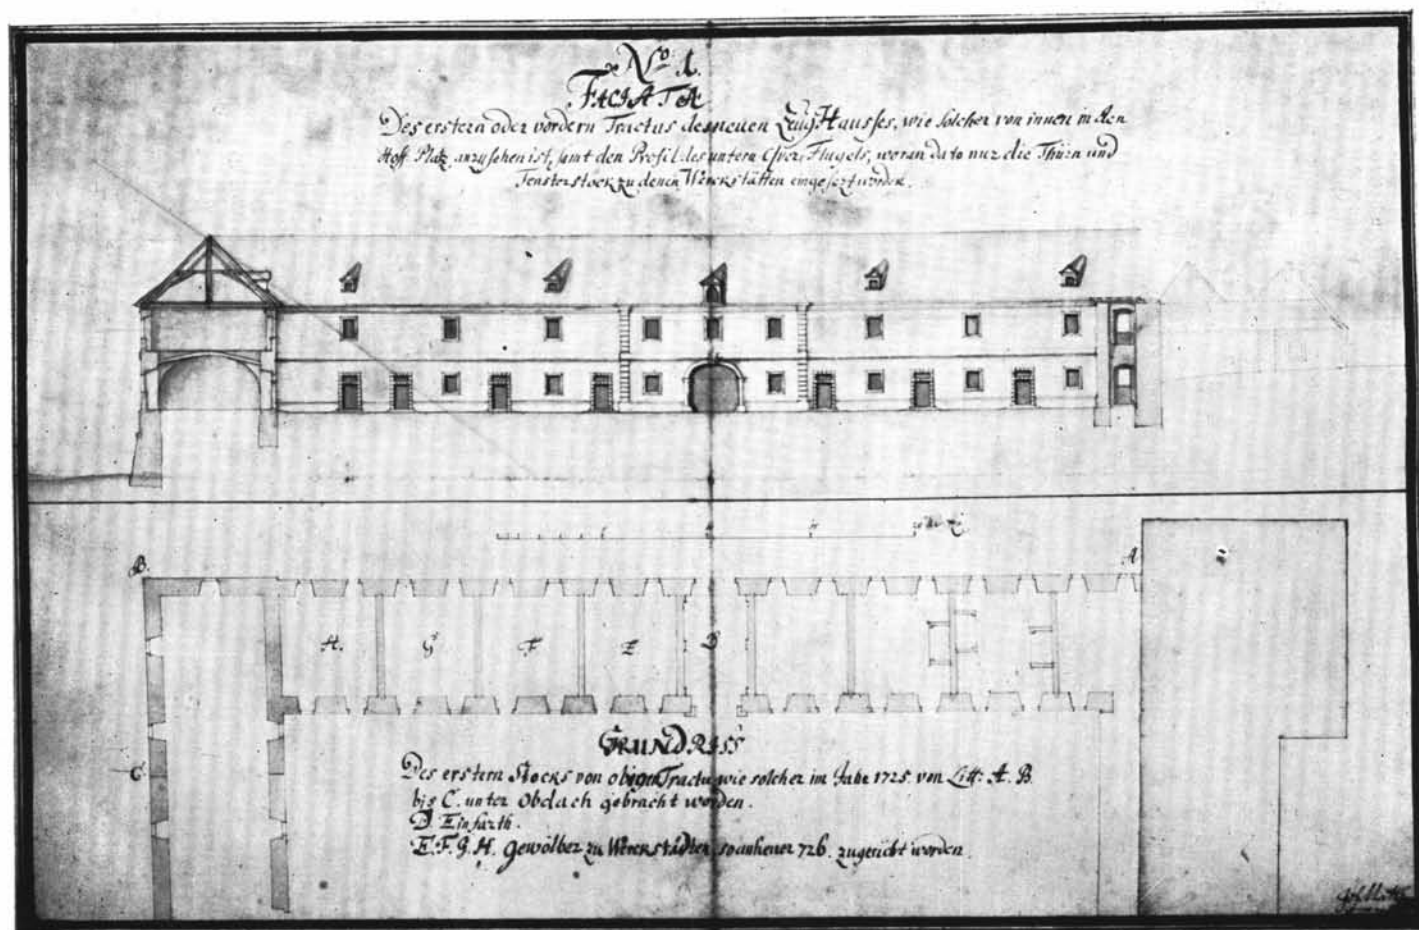 No. 1.
FACIATA
Des erstern oder vordern Tractus des neuen Zeug Hausses, wie solcher von innen in den
Hoff Platz anzusehen ist, samt den Profil des untern Flugels, woran dato nur die Thürn und
Fensterstöck zu denen Werckstätten eingesezt worden.
B.
A
H.
G
F
E
D
C
GRUNDRISS
Des erstern Stocks von obigen Tractu, wie solcher im Jahr 1725. von Litt: A. B.
bis C. unter obdach gebracht worden.
D. Einfarth.
E. F. G. H. Gewölber zu Werckstädten, so anheuer 726. zugericht worden.